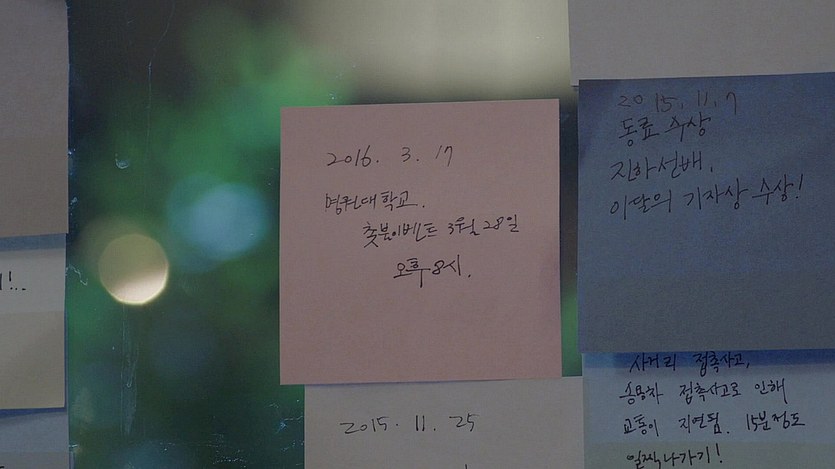 2016. 3. 17
명원대학교.
촛불이벤트 3월 28일
오후 8시.
2015. 11. 7
동료 수상
진하선배,
이달의 기자상 수상!
!...
사거리 접촉사고,
승용차 접촉사고로 인해
교통이 지연됨. 15분정도
일찍나가기!
2015. 11. 25